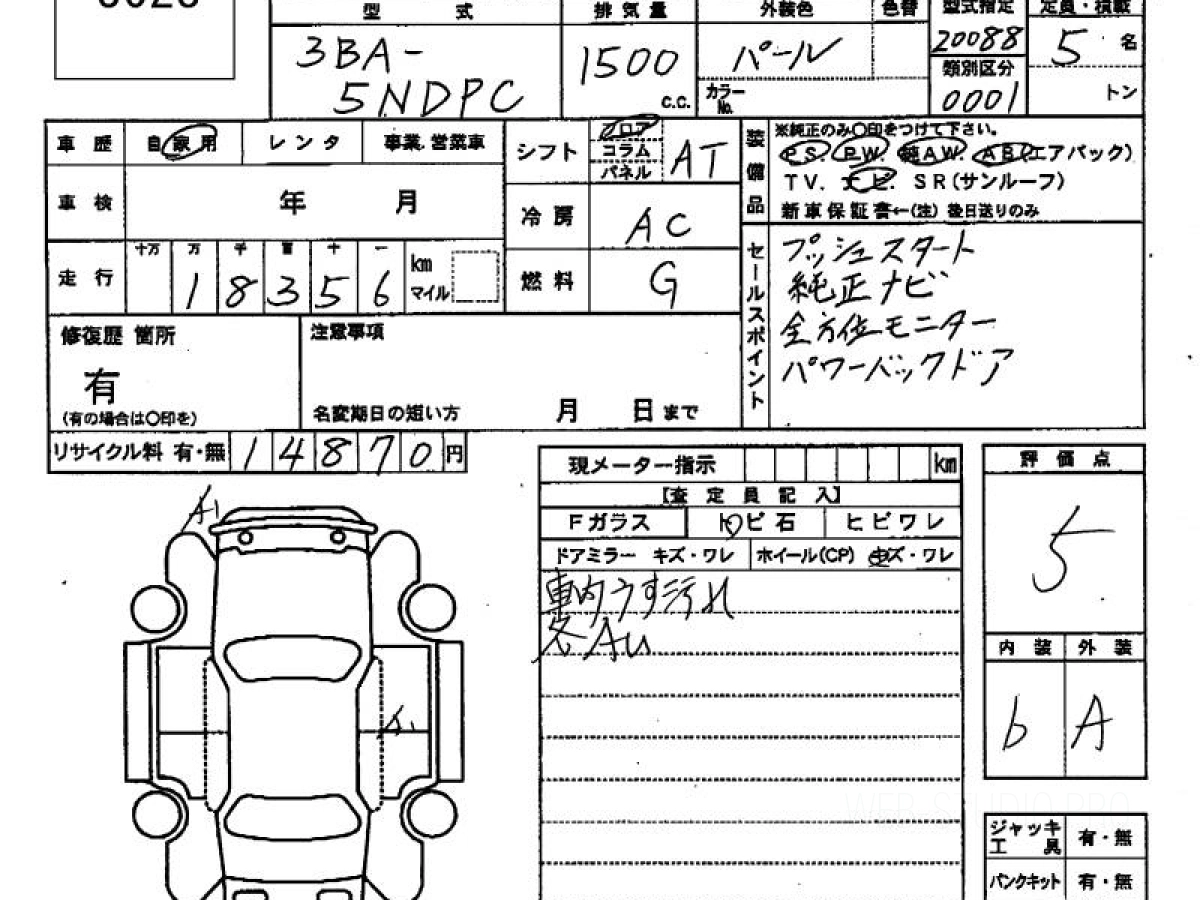 型 式
排気量
外装色
色替
型式指定
定員・積載
3BA-
5NDPC
1500
c.c.
パール
カラーNo.
20088
類別区分
0001
5 名
トン
車歴
自家用
レンタ
事業.営業車
車検
年 月
走行
十万 万 千 百 十 一
1 8 3 5 6
km
マイル
シフト
フロア
コラム
パネル
AT
冷房
AC
燃料
G
装備品
※純正のみ〇印をつけて下さい。
PS. PW. 純AW. AB(エアバック)
TV. ナビ. SR(サンルーフ)
新車保証書←(注) 後日送りのみ
セールスポイント
プッシュスタート
純正ナビ
全方位モニター
パワーバックドア
修復歴 箇所
有
(有の場合は〇印を)
注意事項
名変期日の短い方 月 日まで
リサイクル料 有・無 14870円
現メーター指示 km
【査定員記入】
Fガラス
トビ石
ヒビワレ
ドアミラー キズ・ワレ
ホイール(CP) キズ・ワレ
車内うす汚れ
各AU
A1
A1
評価点
5
内装
外装
b
A
ジャッキ
工具
有・無
パンクキット
有・無
WEB STUDIO PRO